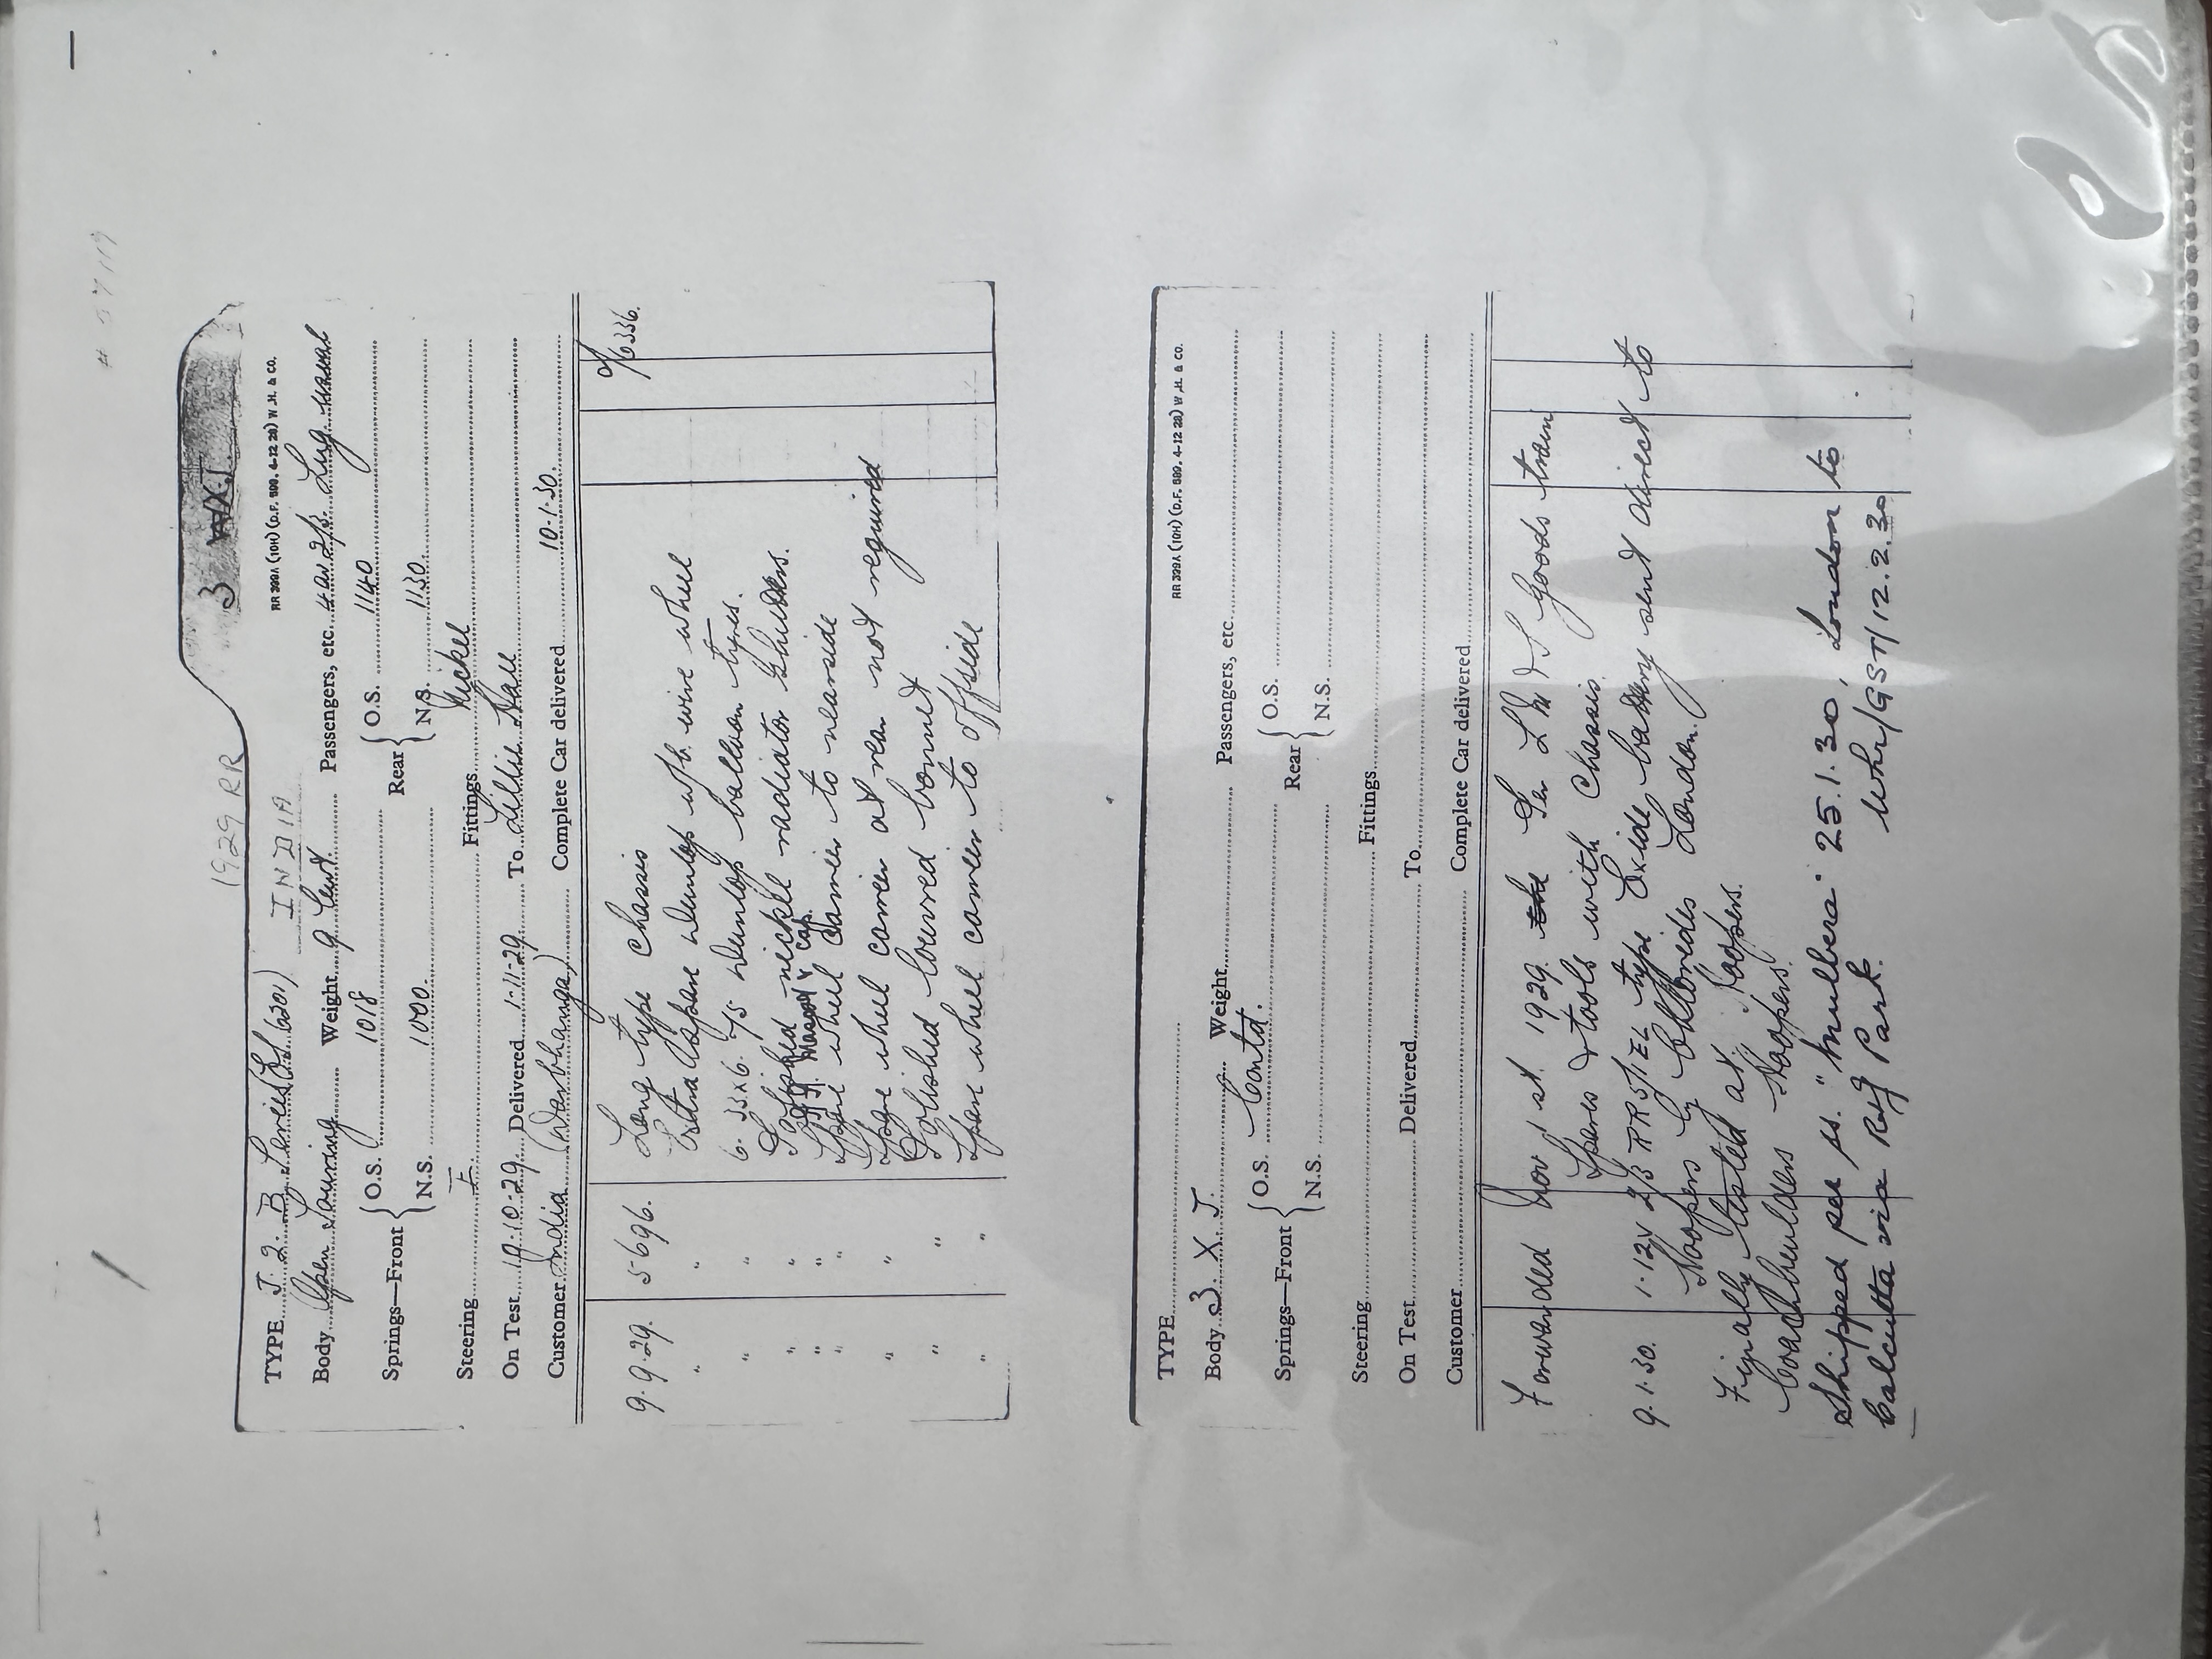 1929 RR
3 WXJ
RR 399A (10H) (D.F. 500. 4-12 28) W.H. & CO.
TYPE J. 2. B Series (6201) INDIA
Body Open Touring Weight 9 Cwt. Passengers, etc. 4 or 2/3. Lug. usual
Springs—Front O.S. 1018 Rear O.S. 1140
N.S. 1000. N.S. 1130.
Steering F. Fittings Nickel
On Test 19.10.29. Delivered 1.11.29. To Lillie Hall
Customer India (Darbhanga) Complete Car delivered 10.1.30.
6336.
9.9.29. 5696. Long type chassis
" " Extra spare Dunlop wh. wire wheel
" " 6. 33x6.75 Dunlop balloon tyres.
" " Polished nickle radiator shutters.
" " Mascot & cap.
" " Spare wheel carrier to nearside
" " Spare wheel carrier at rear not required
" " Polished louvred bonnet
" " Spare wheel carrier to offside
RR 399A (10H) (D.F. 500. 4-12 28) W.H. & CO.
TYPE
Body 3. X. J. Weight Passengers, etc.
Contd.
Springs—Front O.S. Rear O.S.
N.S. N.S.
Steering Fittings
On Test Delivered To
Customer Complete Car delivered
Forwarded Nov 1st. 1929. the Per L M & S Goods train
Spares & tools with chassis.
9.1.30. 1.12V 2/3 RR5/1EL type Exide battery sent direct to
Hoopers by Chlorides London.
Finally tested at Hoopers.
Coachbuilders Hoopers.
Shipped per ss. "Mulbera" 25.1.30, London to
Calcutta via Roy Park. Whr/GST/12.2.30